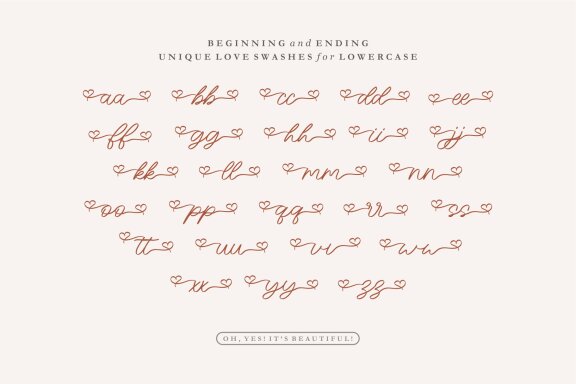 BEGINNING and ENDING
UNIQUE LOVE SWASHES for LOWERCASE
aa bb cc dd ee
ff gg hh ii jj
kk ll mm nn
oo pp qq rr ss
tt uu vv ww
xx yy zz
OH, YES! IT'S BEAUTIFUL!